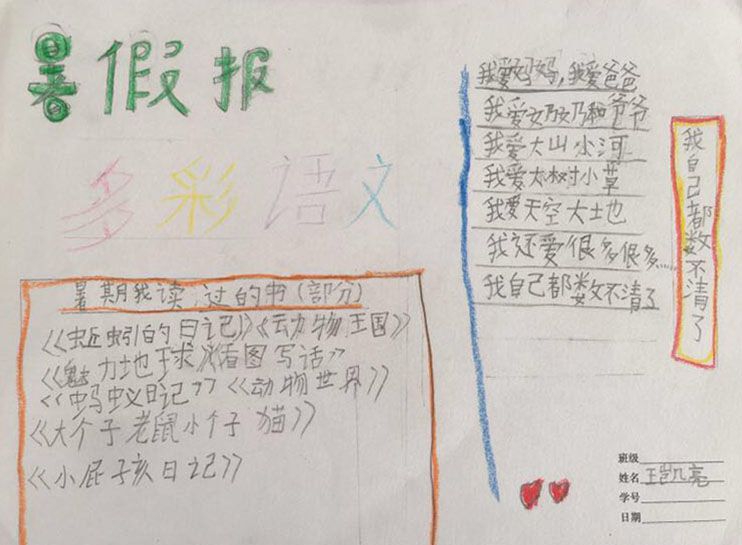 暑假报
多彩语文
暑期我读过的书(部分)
《蚯蚓的日记》《动物王国》
《魅力地球》《看图写话》
《蚂蚁日记》《动物世界》
《大个子老鼠小个子猫》
《小屁孩日记》
我爱妈妈,我爱爸爸
我爱奶奶和爷爷
我爱大山小河
我爱大树小草
我爱天空大地
我还爱很多很多……
我自己都数不清了
我自己都数不清了
班级
姓名 王凯亮
学号
日期